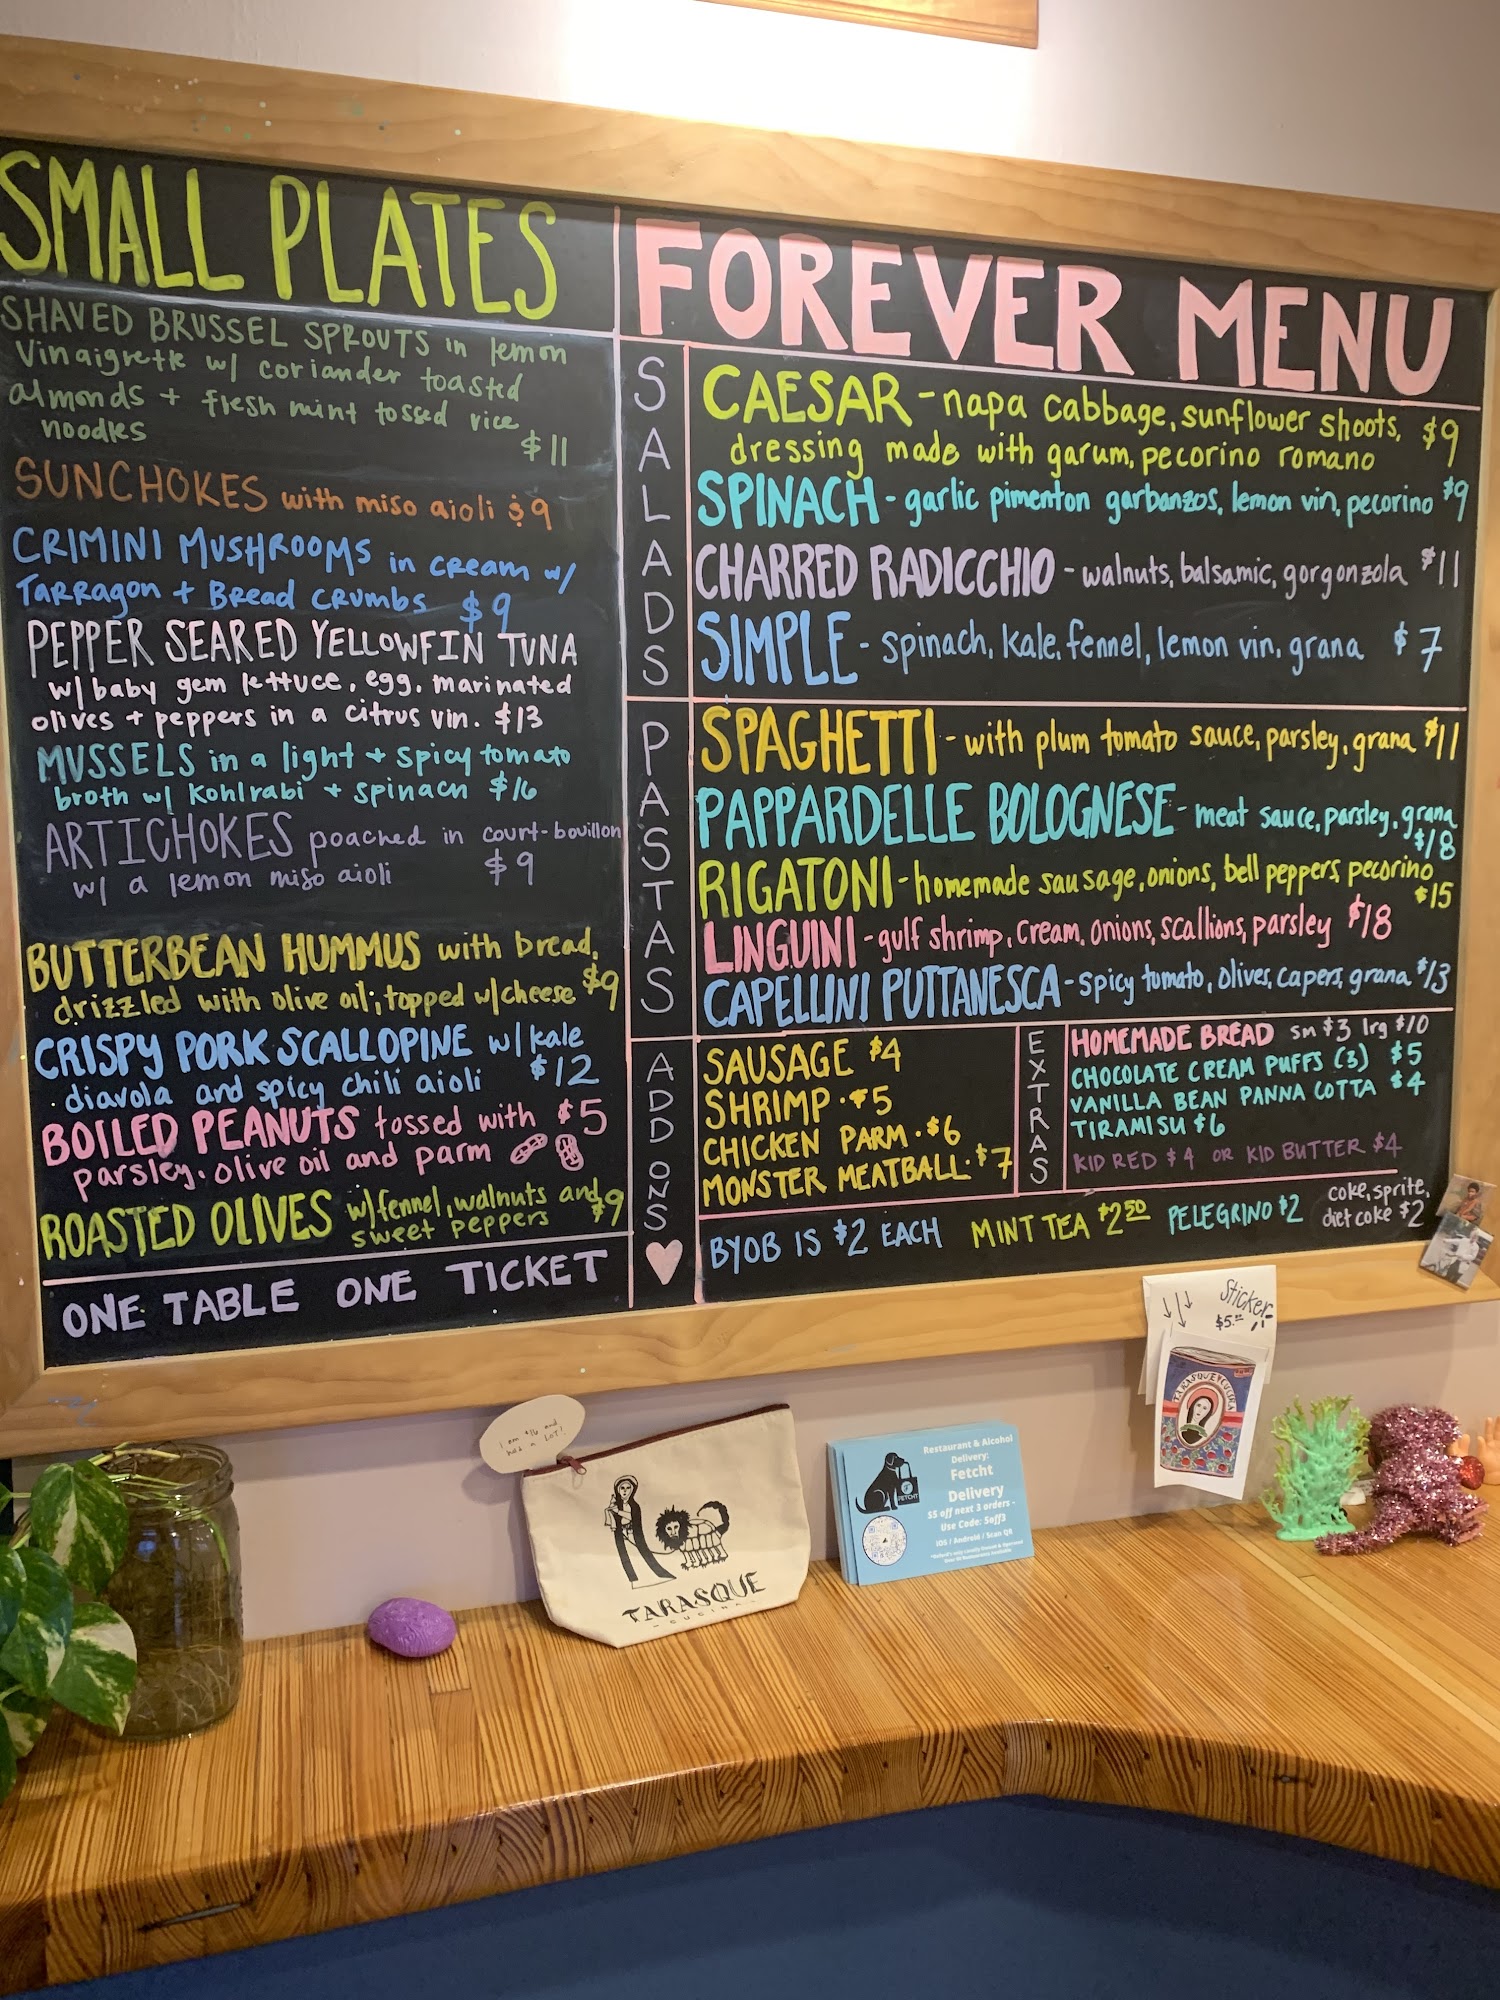 SMALL PLATES
SHAVED BRUSSEL SPROUTS in lemon
Vinaigrette w/ coriander toasted
almonds + fresh mint tossed rice
noodles
$11
SUNCHOKES with miso aioli $9
CRIMINI MUSHROOMS in cream w/
Tarragon + Bread crumbs $9
PEPPER SEARED YELLOWFIN TUNA
w/ baby gem lettuce, egg, marinated
olives + peppers in a citrus vin. $13
MUSSELS in a light + spicy tomato
broth w/ kohlrabi + spinach $16
ARTICHOKES poached in court-bouillon
w/ a lemon miso aioli $9
BUTTERBEAN HUMMUS with bread,
drizzled with olive oil; topped w/cheese $9
CRISPY PORK SCALLOPINE w/ kale
diavola and spicy chili aioli $12
BOILED PEANUTS tossed with $5
parsley, olive oil and parm
ROASTED OLIVES w/fennel, walnuts and
sweet peppers $9
ONE TABLE ONE TICKET
FOREVER MENU
SALADS
CAESAR - napa cabbage, sunflower shoots, $9
dressing made with garum, pecorino romano
SPINACH - garlic pimenton garbanzos, lemon vin, pecorino $9
CHARRED RADICCHIO - walnuts, balsamic, gorgonzola $11
SIMPLE - spinach, kale, fennel, lemon vin, grana $7
PASTAS
SPAGHETTI - with plum tomato sauce, parsley, grana $11
PAPPARDELLE BOLOGNESE - meat sauce, parsley, grana
$18
RIGATONI - homemade sausage, onions, bell peppers, pecorino
$15
LINGUINI - gulf shrimp, cream, onions, scallions, parsley $18
CAPELLINI PUTTANESCA - spicy tomato, olives, capers, grana $13
ADD ONS
SAUSAGE $4
SHRIMP · $5
CHICKEN PARM · $6
MONSTER MEATBALL · $7
EXTRAS
HOMEMADE BREAD sm $3 lrg $10
CHOCOLATE CREAM PUFFS (3) $5
VANILLA BEAN PANNA COTTA $4
TIRAMISU $6
KID RED $4 OR KID BUTTER $4
BYOB IS $2 EACH MINT TEA $2.50 PELEGRINO $2
coke, sprite,
diet coke $2
Sticker
$5.00
TARASQUE CUCINA
I am $16 and
hold a LOT!
TARASQUE
- CUCINA -
Restaurant & Alcohol
Delivery:
Fetcht
Delivery
$5 off next 3 orders -
Use Code: 5off3
iOS / Android / Scan QR
FETCHT